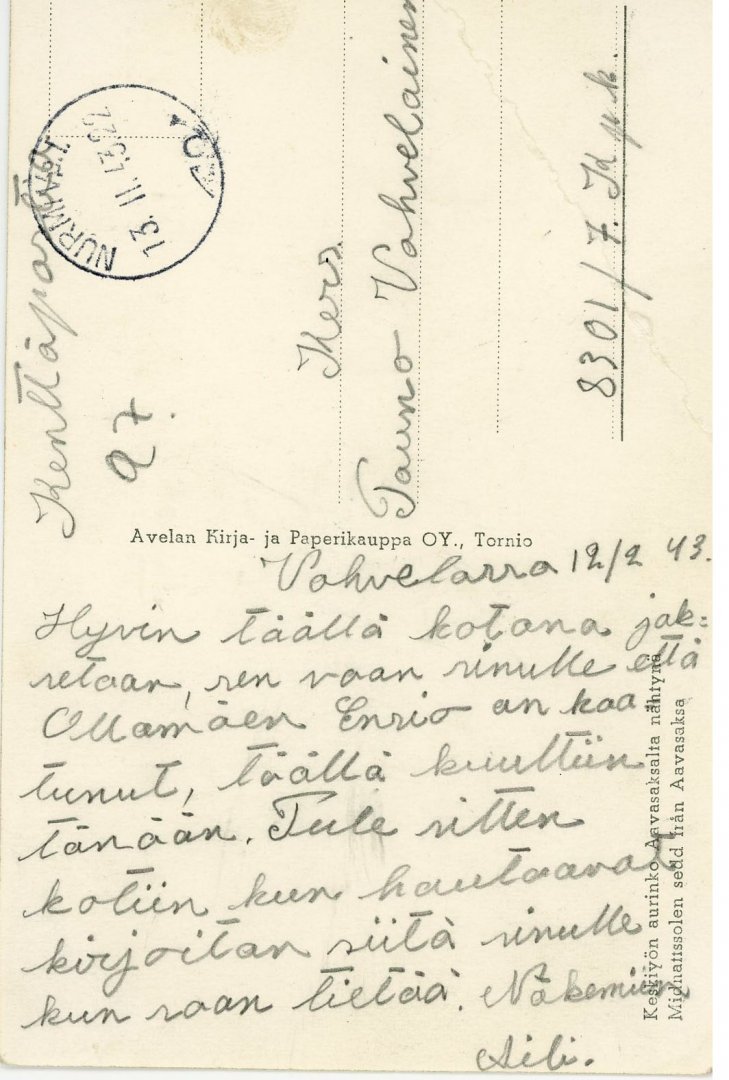 Kenttäpostia
NURMIVAARA
13.II.43.22
27.
Kers.
Tauno Vahvelainen
8301/7. Kpk.
Avelan Kirja- ja Paperikauppa OY., Tornio
Keskiyön aurinko Aavasaksalta nähtynä
Midnattssolen sedd från Aavasaksa
Vahvelassa 12/2 43.
Hyvin täällä kotona jak=
setaan, sen vaan sinulle että
Ollamäen Ensio on kaa
tunut, täällä kuultiin
tänään. Tule sitten
kotiin kun hautaavat
kirjoitan siitä sinulle
kun saan tietää. Näkemiin
Aili.